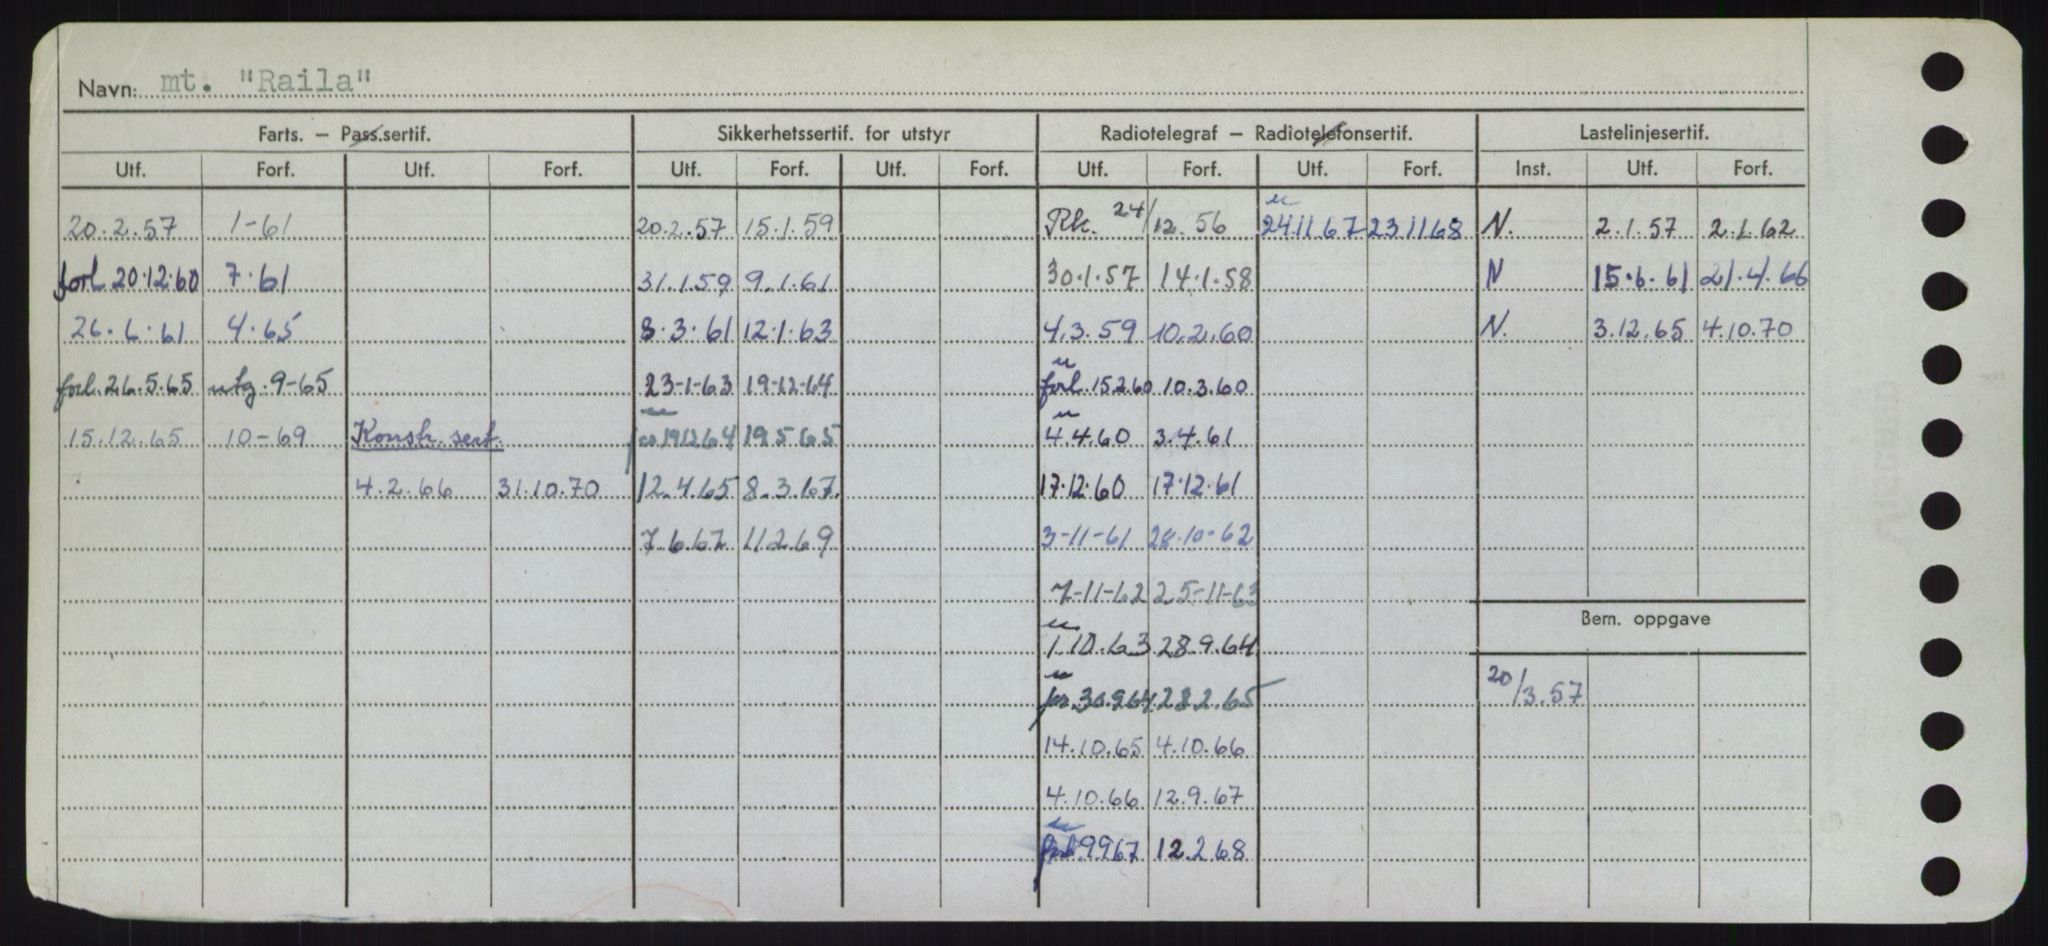 Navn: mt. "Raila"
Farts. — Pass.sertif. Sikkerhetssertif. for utstyr Radiotelegraf — Radiotelefonsertif. Lastelinjesertif.
Utf. Forf. Utf. Forf. Utf. Forf. Utf. Forf. Utf. Forf. Utf. Forf. Inst. Utf. Forf.
20.2.57 1-61 20.2.57 15.1.59 Rk. 24/12.56 u 24.11.67 23.11.68 N. 2.1.57 2.1.62
forl 20.12.60 7.61 31.1.59 9.1.61 30.1.57 14.1.58 N 15.6.61 21.4.66
26.6.61 4.65 8.3.61 12.1.63 4.3.59 10.2.60 N. 3.12.65 4.10.70
forl. 26.5.65 utg. 9-65 23-1-63 19-12-64 u forl. 15.2.60 10.3.60
15.12.65 10-69 Konstr. sert. u 19.12.64 19.5.65 u 4.4.60 3.4.61
4.2.66 31.10.70 12.4.65 8.3.67. 17.12.60 17.12.61
7.6.67 11.2.69 3-11-61 28.10-62
7-11-62 25-11-63
u 1.10.63 28.9.64
Bem. oppgave
u 30.9.64 28.2.65 20/3.57
14.10.65 4.10.66
4.10.66 12.9.67
u forl. 9.9.67 12.2.68